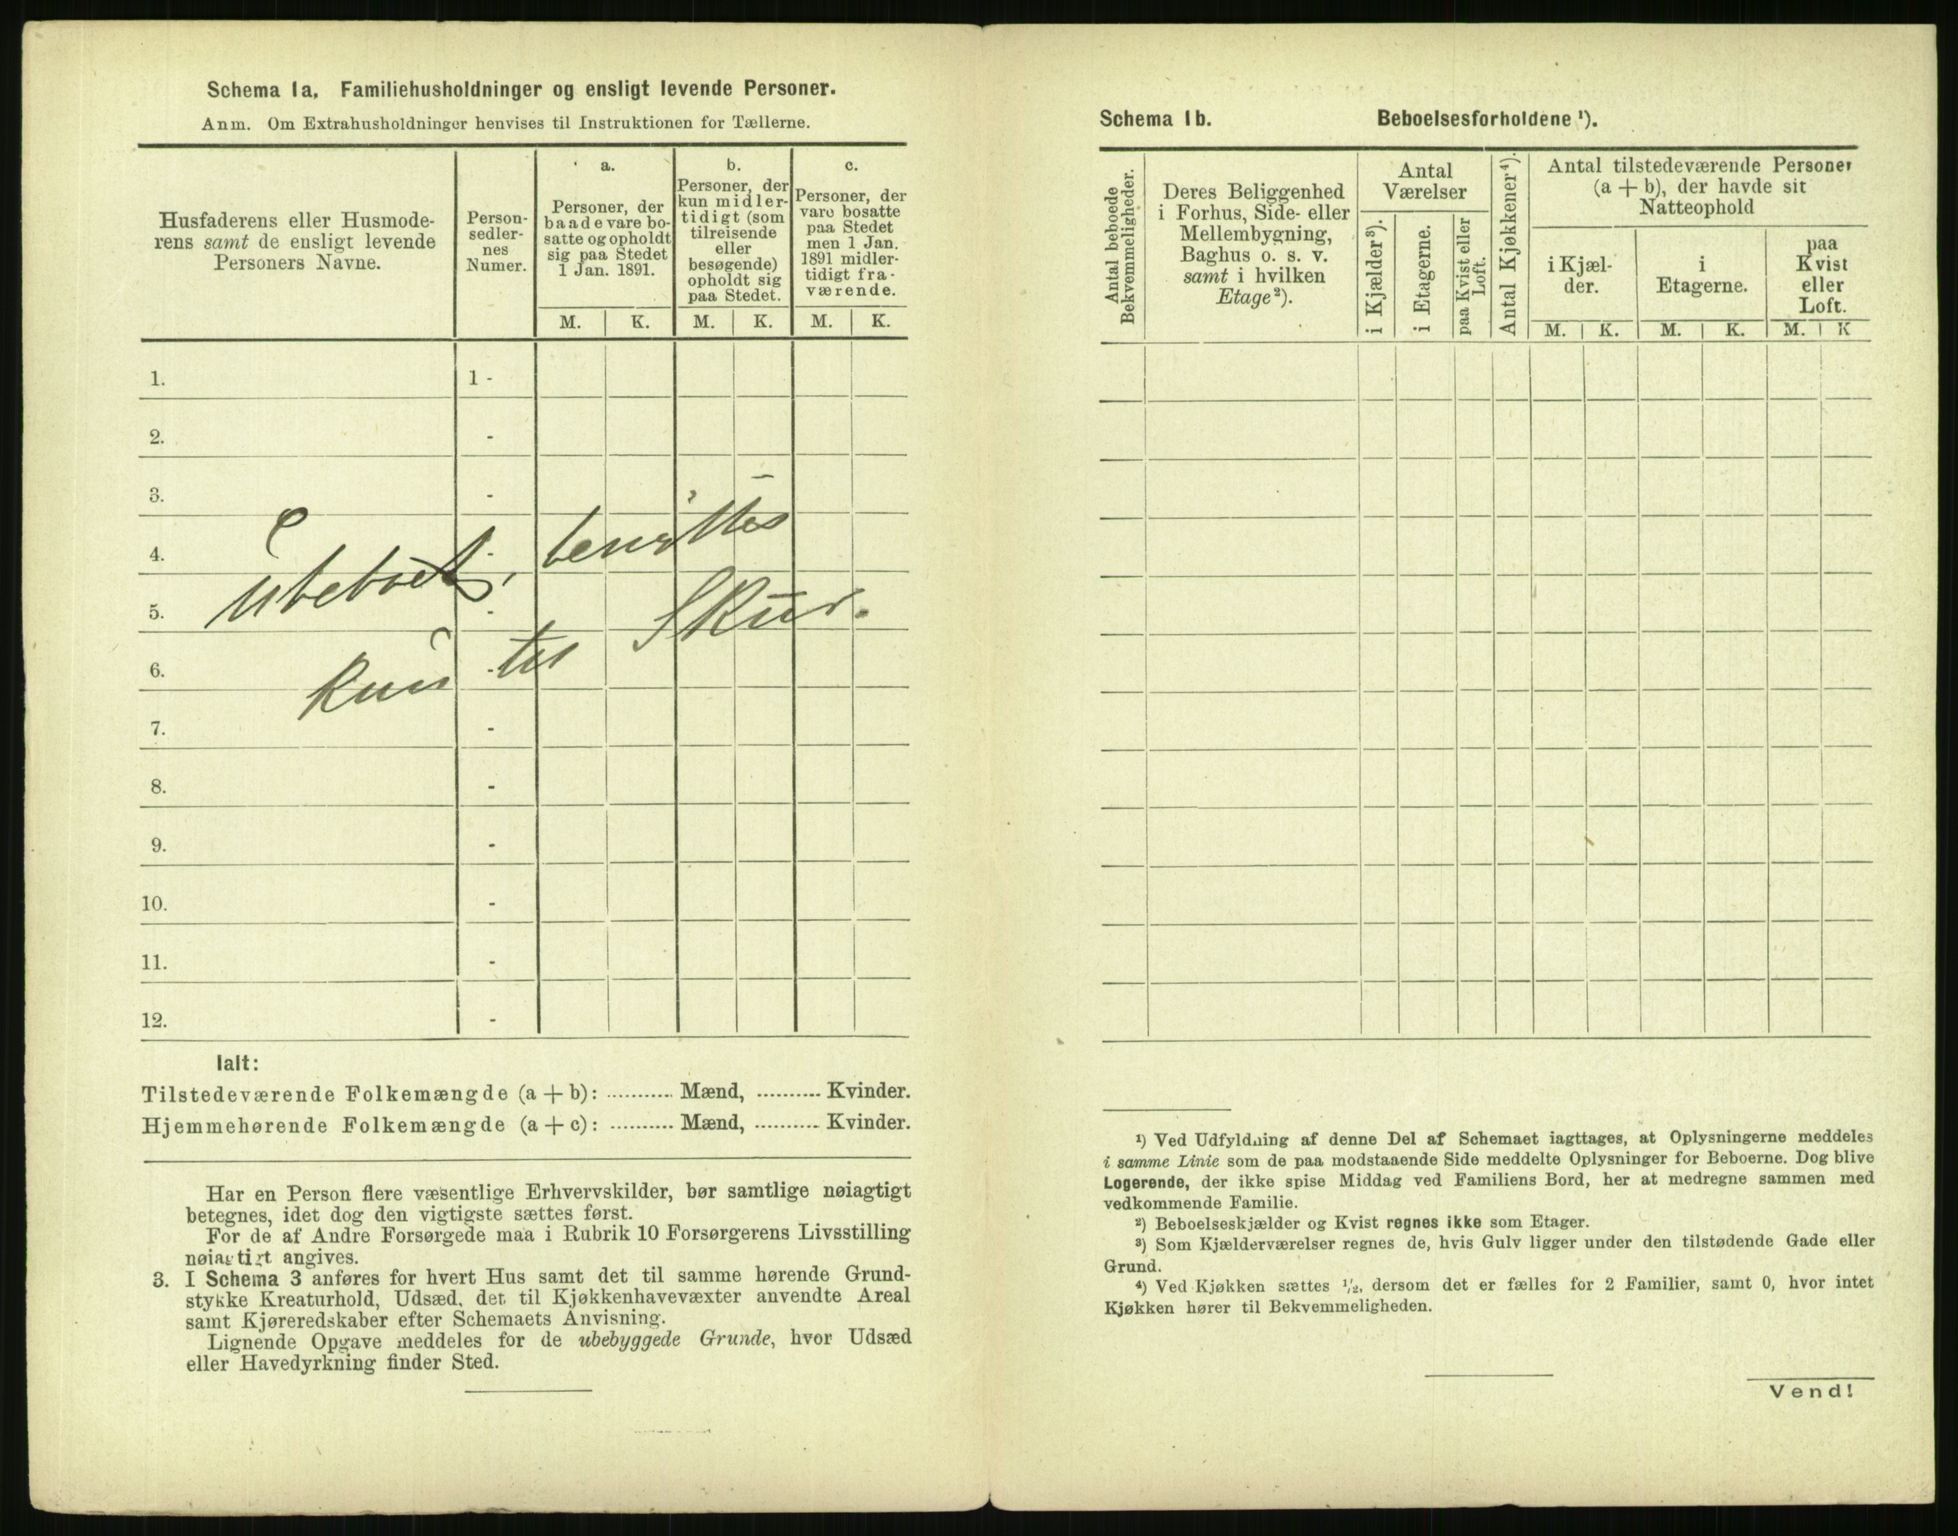 Schema 1a. Familiehusholdninger og ensligt levende Personer.
Anm. Om Extrahusholdninger henvises til Instruktionen for Tællerne.
Husfaderens eller Husmode-
rens samt de ensligt levende
Personers Navne.
Person-
sedler-
nes
Numer.
a.
Personer, der
baade vare bo-
satte og opholdt
sig paa Stedet
1 Jan. 1891.
b.
Personer, der
kun midler-
tidigt (som
tilreisende
eller
besøgende)
opholdt sig
paa Stedet.
c.
Personer, der
vare bosatte
paa Stedet
men 1 Jan.
1891 midler-
tidigt fra-
værende.
M. K. M. K. M. K.
1. 1 -
2. -
3. -
4. -
5. -
6. -
7. -
8. -
9. -
10. -
11. -
12. -
Ubeboet, benyttes
kun til Skur.
Ialt:
Tilstedeværende Folkemængde (a + b): ........... Mænd, ........... Kvinder.
Hjemmehørende Folkemængde (a + c): ........... Mænd, ........... Kvinder.
Har en Person flere væsentlige Erhvervskilder, bør samtlige nøiagtigt
betegnes, idet dog den vigtigste sættes først.
For de af Andre Forsørgede maa i Rubrik 10 Forsørgerens Livsstilling
nøiagtigt angives.
3. I Schema 3 anføres for hvert Hus samt det til samme hørende Grund-
stykke Kreaturhold, Udsæd, det til Kjøkkenhavevæxter anvendte Areal
samt Kjøreredskaber efter Schemaets Anvisning.
Lignende Opgave meddeles for de ubebyggede Grunde, hvor Udsæd
eller Havedyrkning finder Sted.
Schema 1b. Beboelsesforholdene ¹).
Antal beboede
Bekvemmeligheder.
Deres Beliggenhed
i Forhus, Side- eller
Mellembygning,
Baghus o. s. v.
samt i hvilken
Etage²).
Antal
Værelser
i Kjælder³).
i Etagerne.
paa Kvist eller
Loft.
Antal Kjøkkener⁴).
Antal tilstedeværende Personer
(a + b), der havde sit
Natteophold
i Kjæl-
der.
i
Etagerne.
paa
Kvist
eller
Loft.
M. K. M. K. M. K
¹) Ved Udfyldning af denne Del af Schemaet iagttages, at Oplysningerne meddeles
i samme Linie som de paa modstaaende Side meddelte Oplysninger for Beboerne. Dog blive
Logerende, der ikke spise Middag ved Familiens Bord, her at medregne sammen med
vedkommende Familie.
²) Beboelseskjælder og Kvist regnes ikke som Etager.
³) Som Kjælderværelser regnes de, hvis Gulv ligger under den tilstødende Gade eller
Grund.
⁴) Ved Kjøkken sættes ¹/₂, dersom det er fælles for 2 Familier, samt 0, hvor intet
Kjøkken hører til Bekvemmeligheden.
Vend!